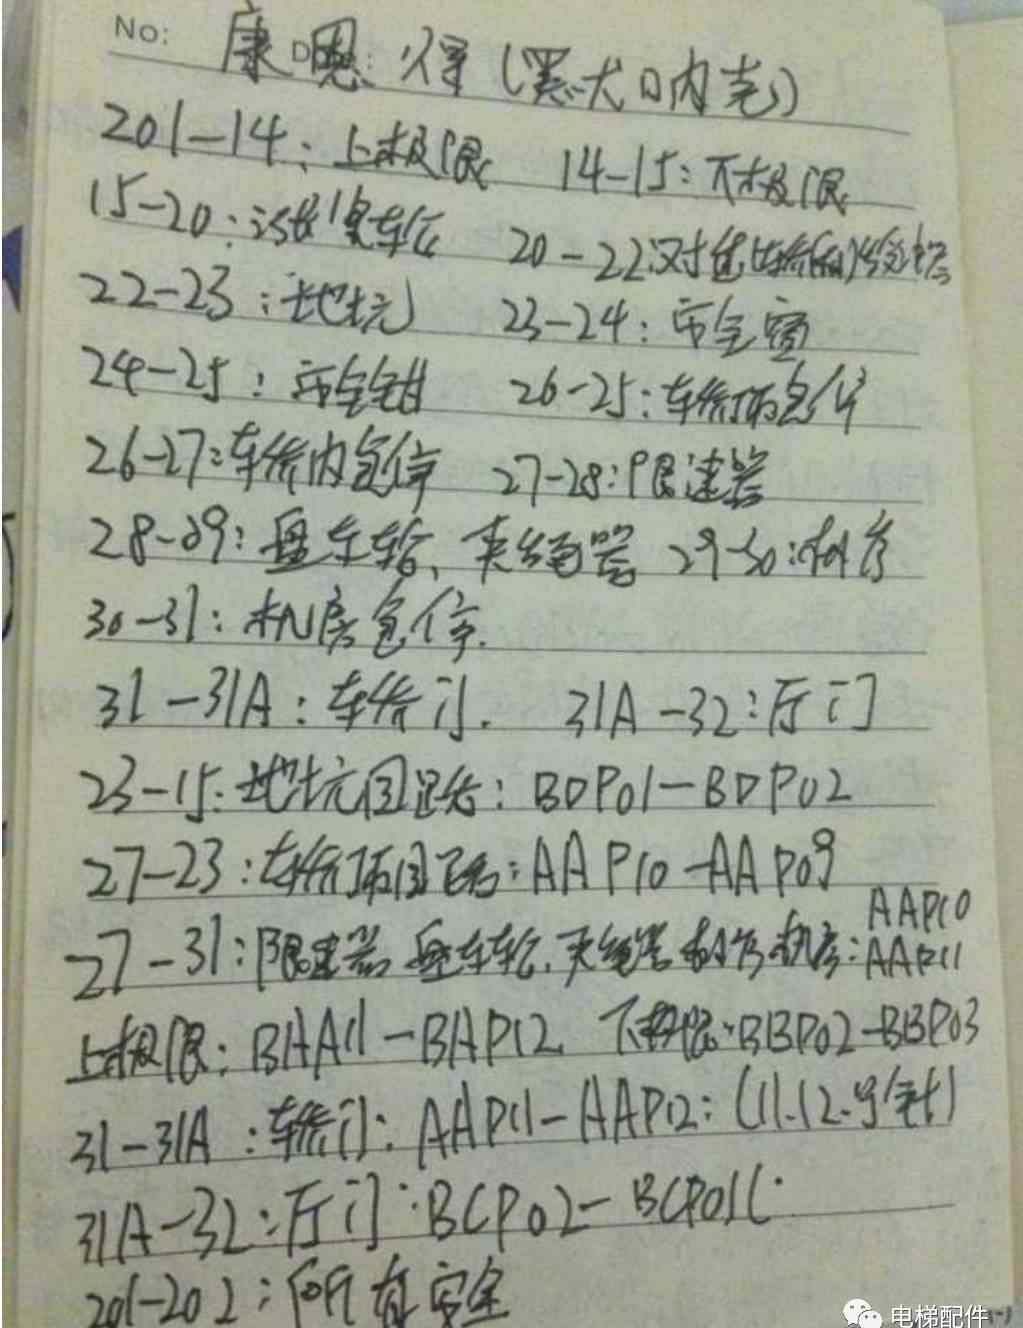 No: 康恩 (黑大口内壳)
201-14: 上极限 14-15: 下极限
15-20: 缓车 20-22: 对重(轿厢)缓
22-23: 地坑 23-24: 安全窗
24-25: 安全钳 26-25: 轿顶急停
26-27: 轿内急停 27-28: 限速器
28-29: 盘车轮、夹绳器 29-30:
30-31: 机房急停.
31-31A: 轿门. 31A-32: 厅门
23-15: 地坑回路: BDP01-BDP02
27-23: 轿顶回路: AAP10-AAP09
AAP10
27-31: 限速器 盘车轮. 夹绳器 机房: AAP11
上极限: BHA11-BHAP12 下极限: BBP02-BBP03
31-31A: 轿门: AAP11-AAP12: (11.12.号针)
31A-32: 厅门: BCP02-BCP01
201-202: 所有安全
电梯配件